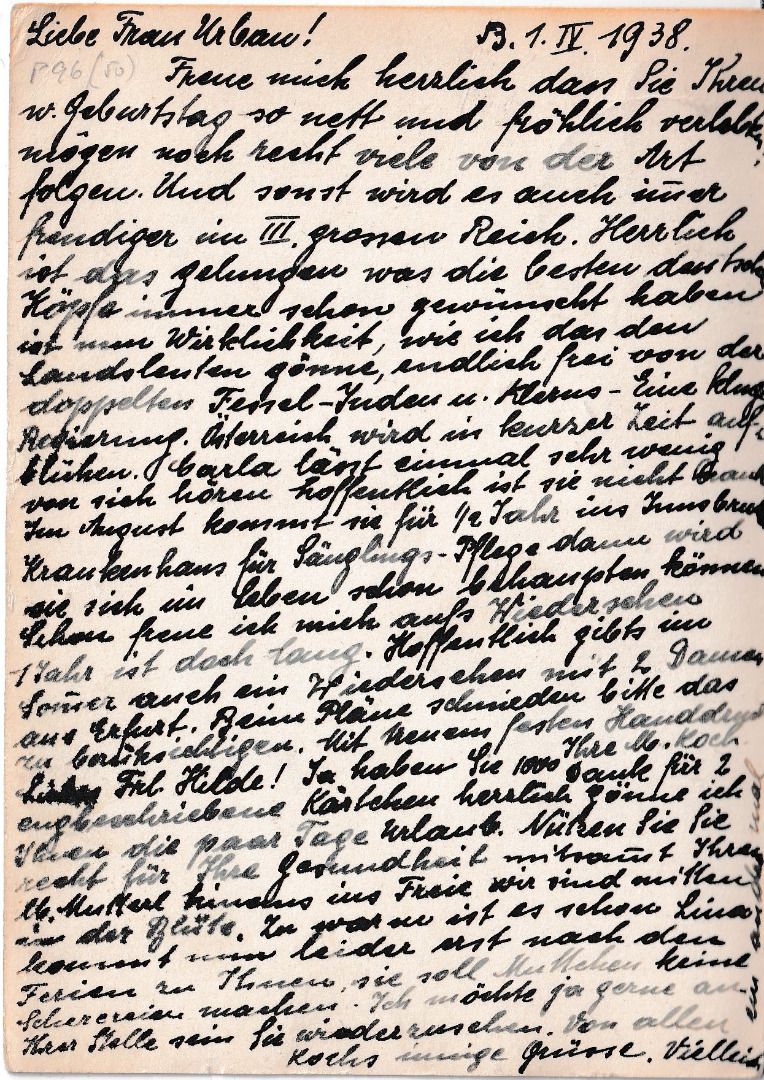 Liebe Frau Urban! B. 1. IV. 1938.
P96 (50)
Freue mich herrlich dass Sie Ihren
w. Geburtstag so nett und fröhlich verlebten,
mögen noch recht viele von der Art
folgen. Und sonst wird es auch im̅er
freudiger im III. grossen Reich. Herrlich
ist das gelungen was die besten deutschen
Köpfe immer schon gewünscht haben
ist nun Wirklichkeit, wie ich das den
Landsleuten gönne, endlich frei von der
doppelten Fessel-Juden u. Klerus- Eine kluge
Regierung. Österreich wird in kurzer Zeit auf-
blühen. Carla lässt einmal sehr wenig
von sich hören hoffentlich ist sie nicht krank
Im August kommt sie für 1/2 Jahr ins Innsbruck
Krankenhaus für Säuglings-Pflege dann wird
sie sich im Leben schon behaupten können
Schon freue ich mich aufs Wiedersehen
1 Jahr ist doch lang. Hoffentlich gibts im
Som̅er auch ein Wiedersehen mit 2 Damen
aus Erfurt. Beim Pläne schmieden bitte das
zu berüksichtigen. Mit treuem festen Handdruck
Ihre M. Koch.
Frl. Hilde! Ja haben Sie 1000 Dank für 2
engbeschriebene Kärtchen herrlich gönne ich
Ihnen die paar Tage Urlaub. Nützen Sie Sie
recht für Ihre Gesundheit mitsam̅t Ihrem
lb. Mutterl hinaus ins Freie wir sind mitten
in der Blüte. Zu warm ist es schon Lina
kommt nun leider erst nach den
Ferien zu Ihnen, sie soll Muttchen keine
Scherereien machen. Ich möchte ja gerne an
Ihrer Stelle sein Sie wiederzusehen. Von allen
Kochs innige Grüsse. Vielleicht
ein andermal